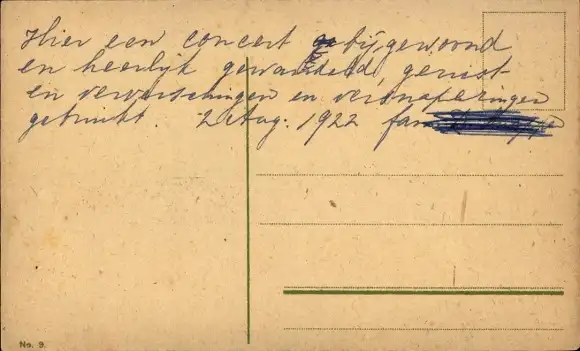 Hier een concert bijgewoond
en heerlijk gewandeld, gerust
en ververschingen en versnaperingen
gebruikt. 2 Aug. 1922 fam
No. 9.